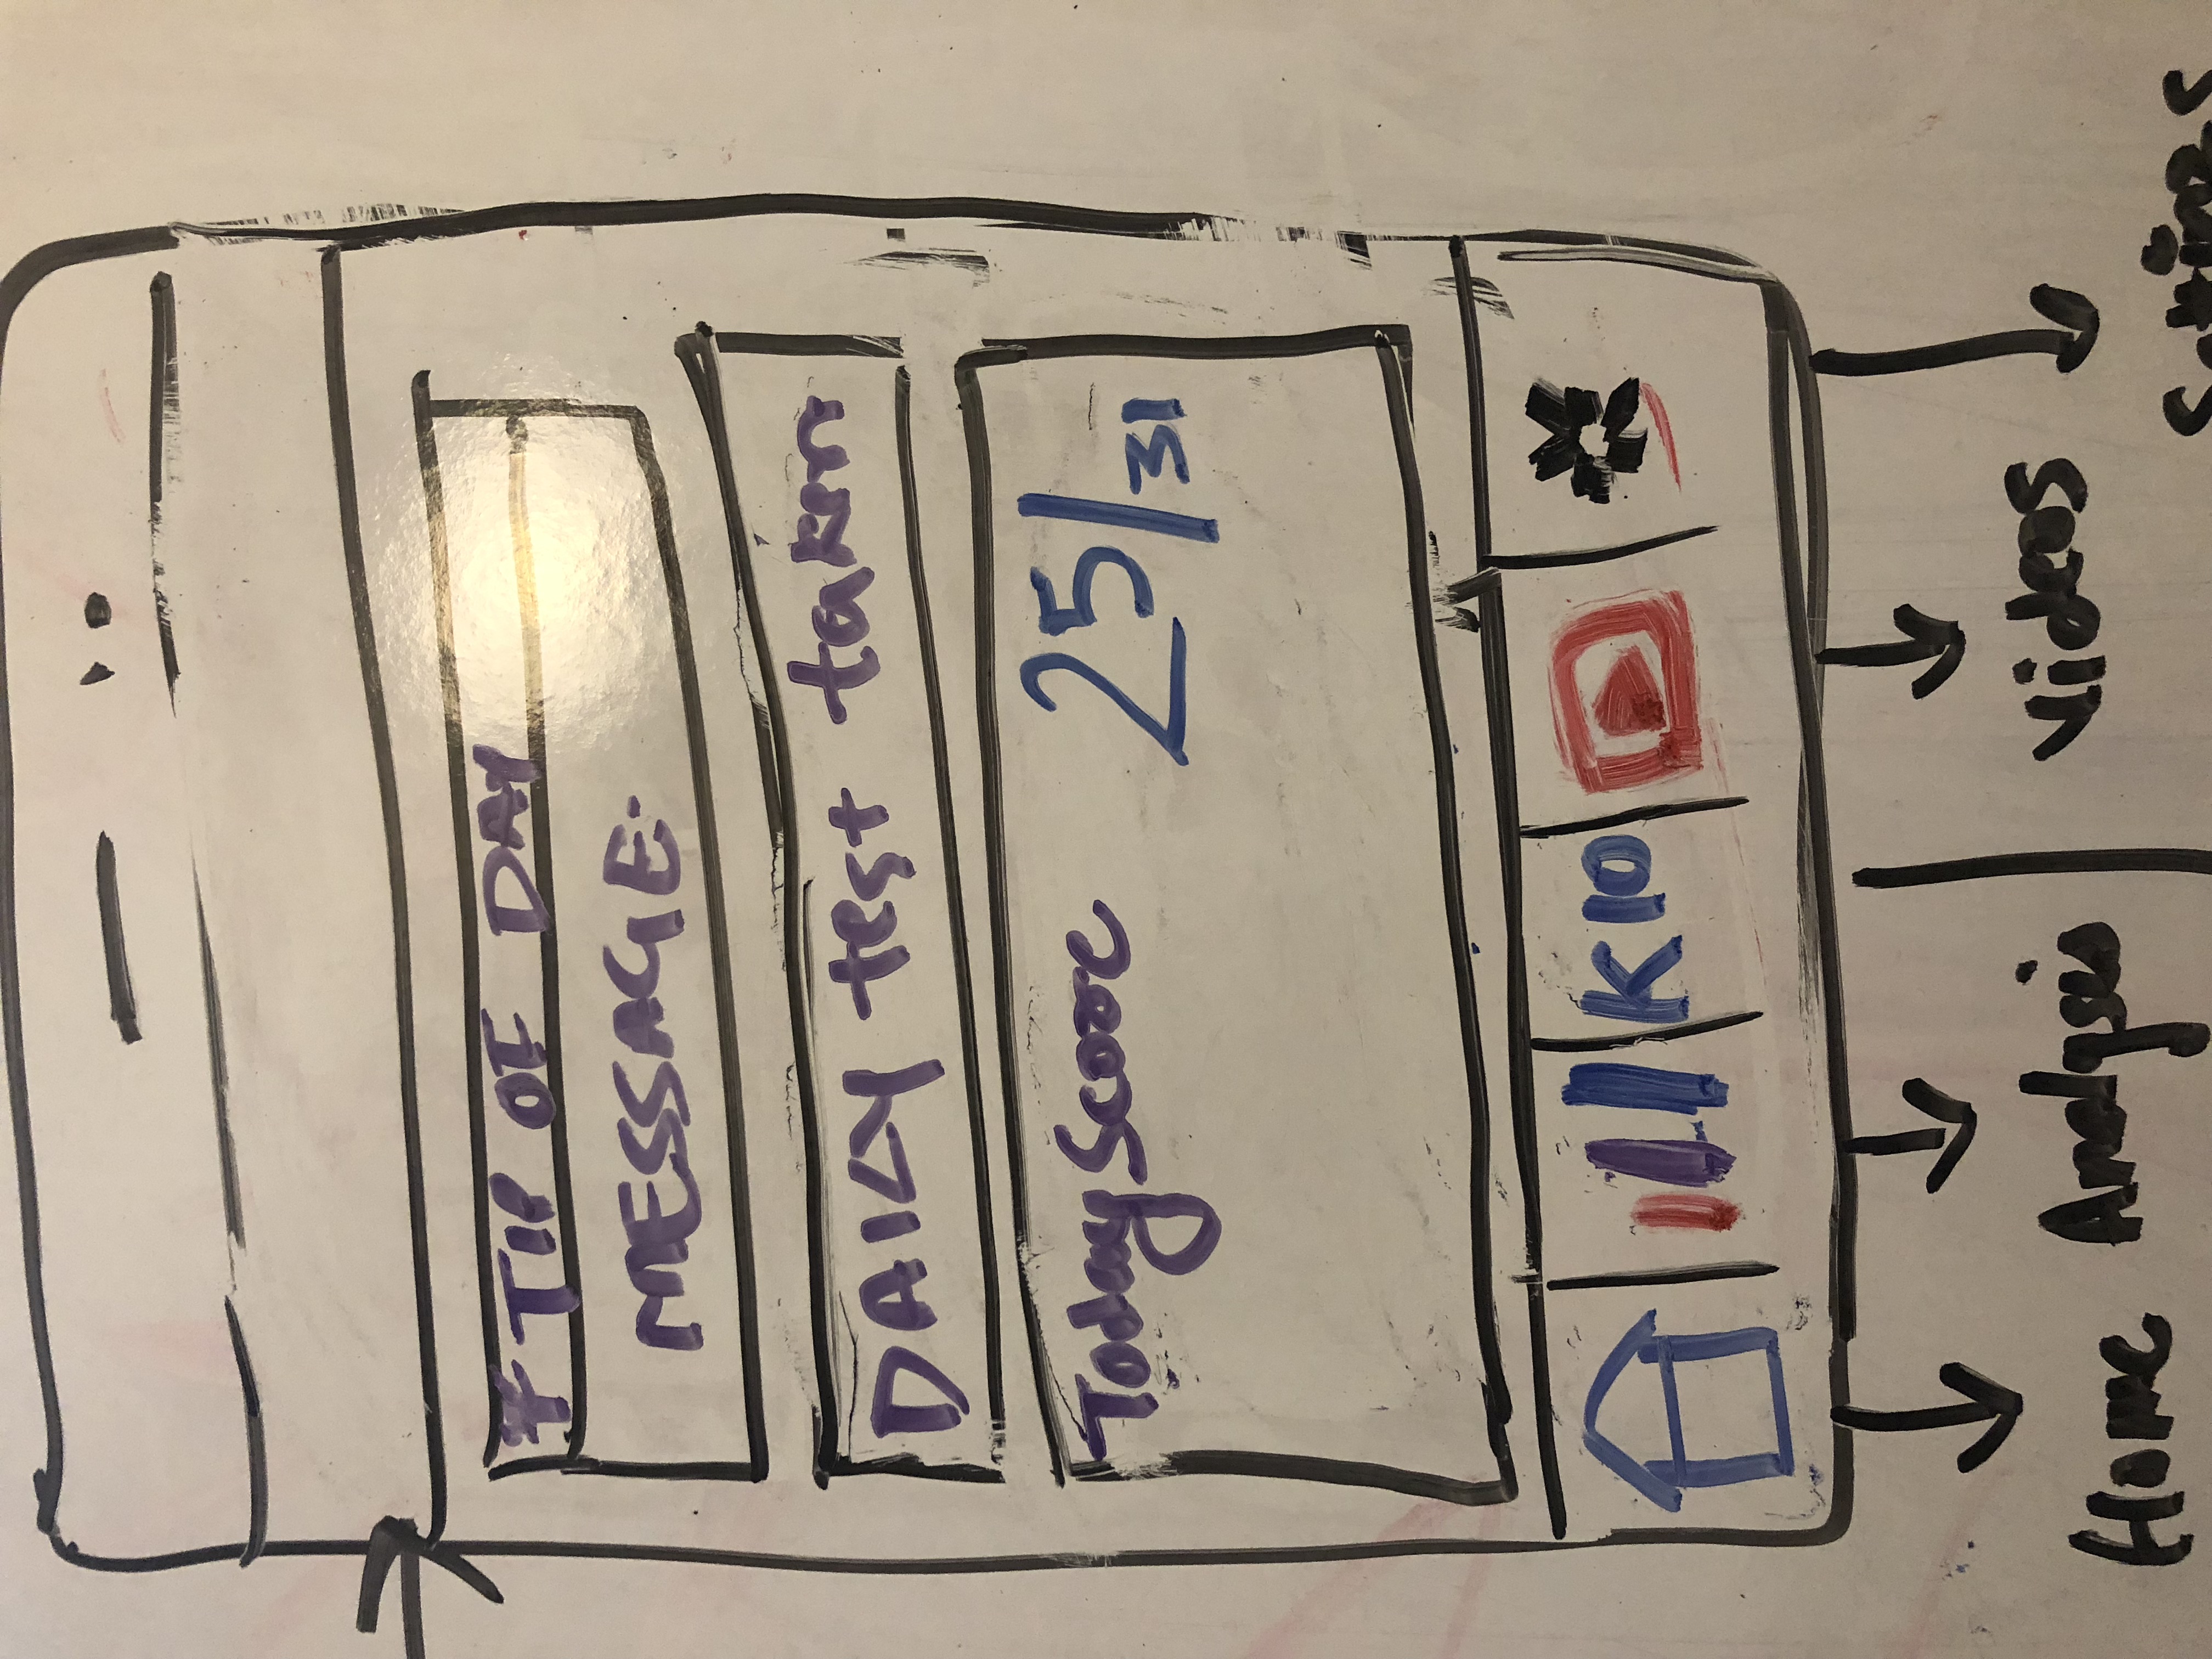 # TIP OF DAY
MESSAGE
DAILY test taken
Today Score 25/31
K10
Home Analysis Videos
Settings